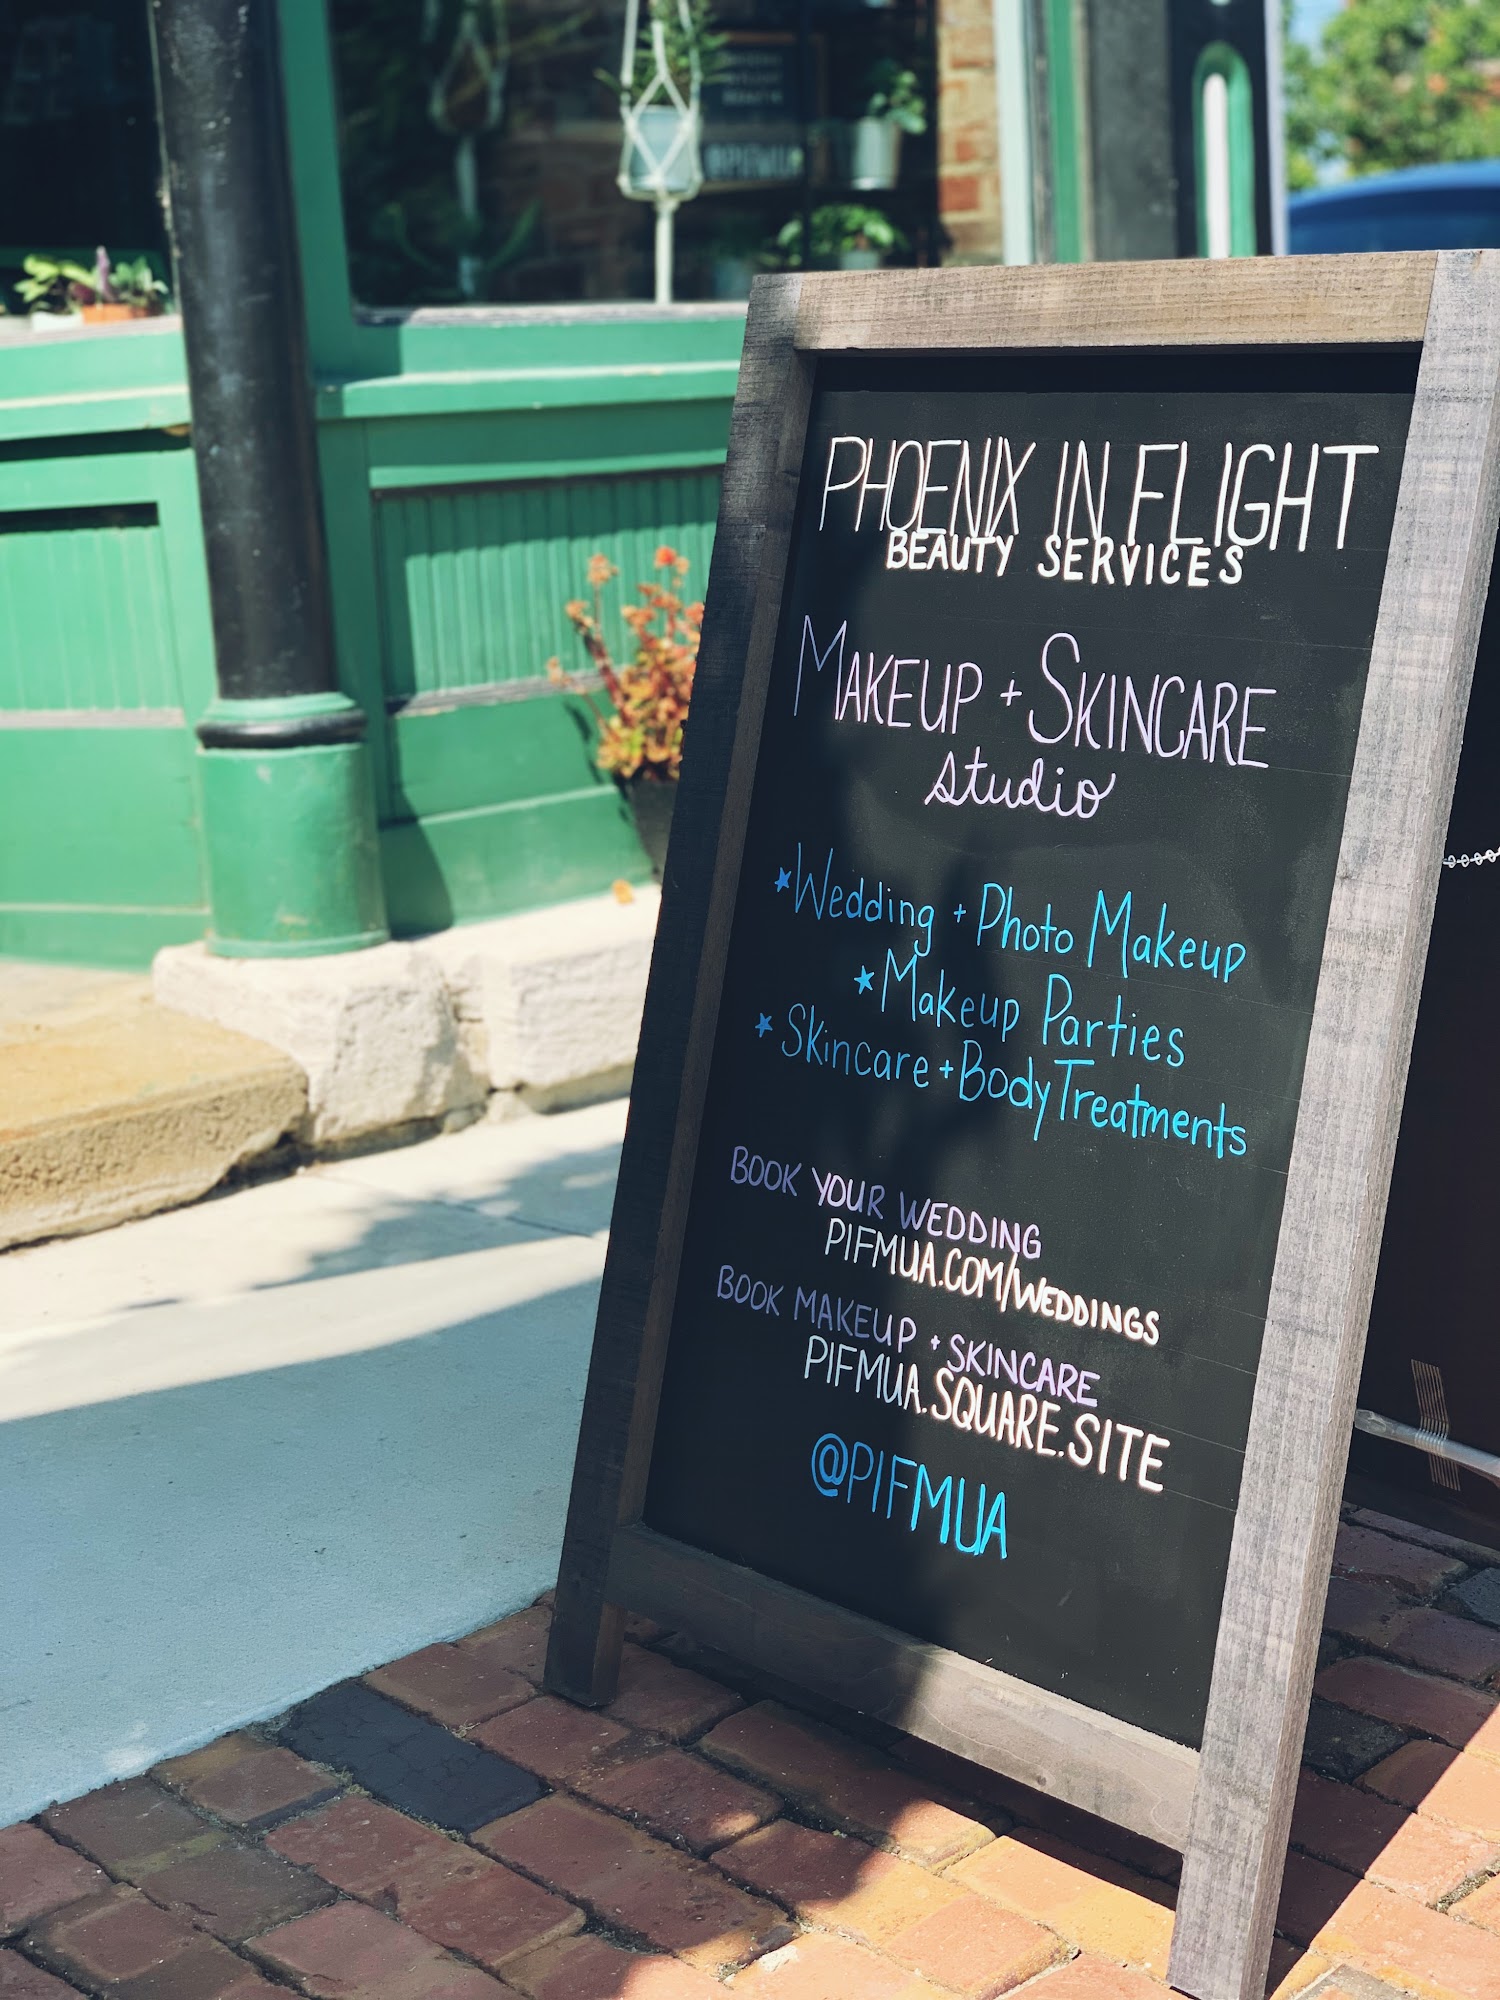 @PIFMUA
PHOENIX IN FLIGHT
BEAUTY SERVICES
MAKEUP + SKINCARE
studio
★Wedding + Photo Makeup
★Makeup Parties
★Skincare + Body Treatments
BOOK YOUR WEDDING
PIFMUA.COM/WEDDINGS
BOOK MAKEUP + SKINCARE
PIFMUA.SQUARE.SITE
@PIFMUA